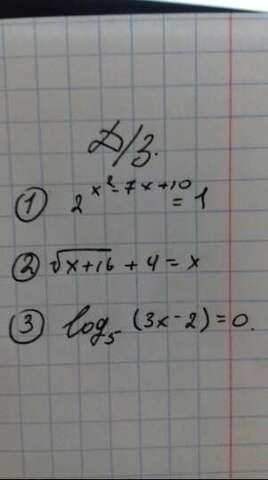 Д/З.
① 2^{x²-7x+10} = 1
② √(x+16) + 4 = x
③ log₅ (3x-2) = 0.